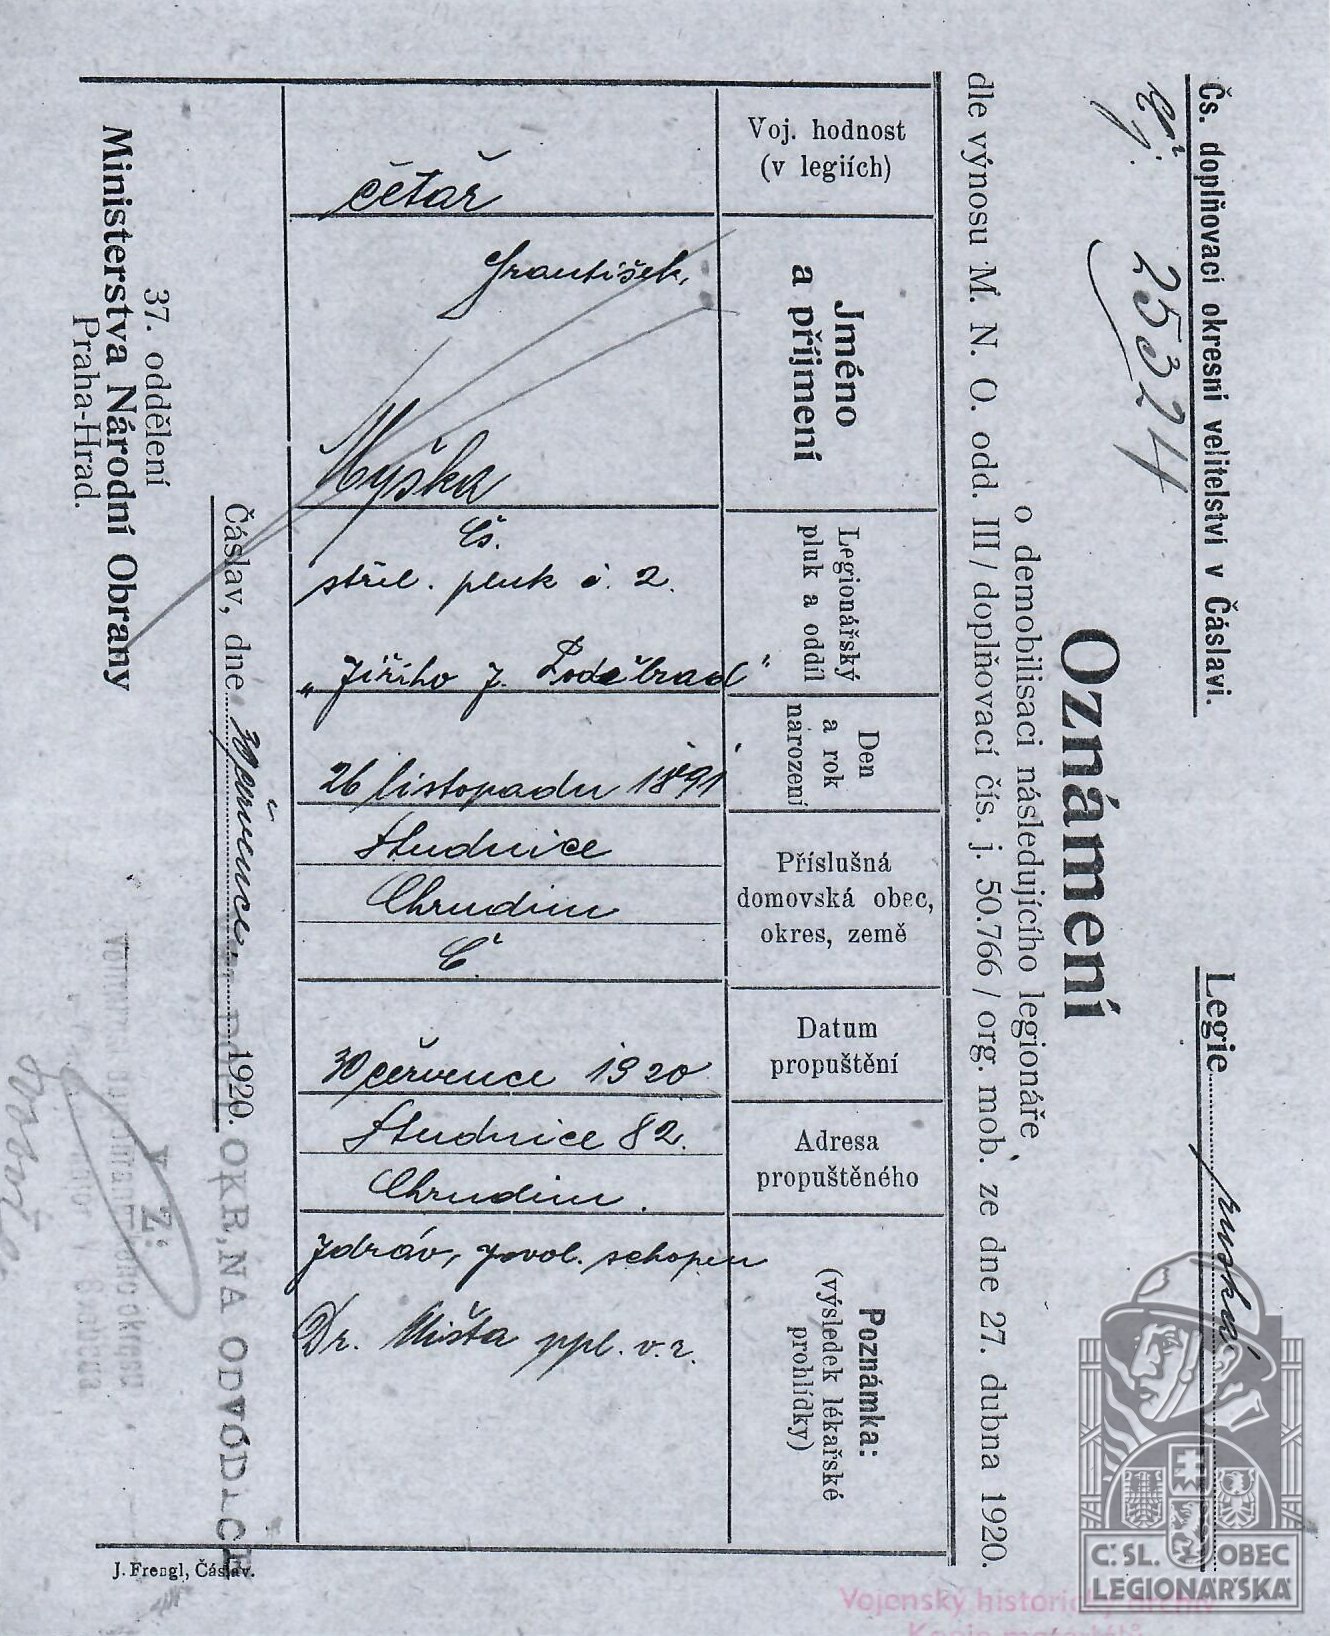 Čs. doplňovací okresní velitelství v Čáslavi.
Čj. 25324
Legie ruská
Oznámení
o demobilisaci následujícího legionáře,
dle výnosu M. N. O. odd. III / doplňovací čís. j. 50.766 / org. mob. ze dne 27. dubna 1920.
Voj. hodnost
(v legiích)
četař
Jméno
a příjmení
František
Myška
Legionářský
pluk a oddíl
čs.
střel. pluk č. 2.
„Jiřího z Poděbrad“
Den
a rok
narození
26 listopadu 1891
Příslušná
domovská obec,
okres, země
Studnice
Chrudim
Č.
Datum
propuštění
30 července 1920
Adresa
propuštěného
Studnice 82.
Chrudim.
Poznámka:
(výsledek lékařské
prohlídky)
zdráv, povol. schopen
Dr. Mišta ppl. v. r.
Čáslav, dne 30 července 1920.
OKR,NA ODVÓD
V Z:
37. oddělení
Ministerstva Národní Obrany
Praha-Hrad.
J. Frengl, Čáslav.
Č. SL. OBEC
LEGIONÁŘSKÁ
Vojenský historický archiv